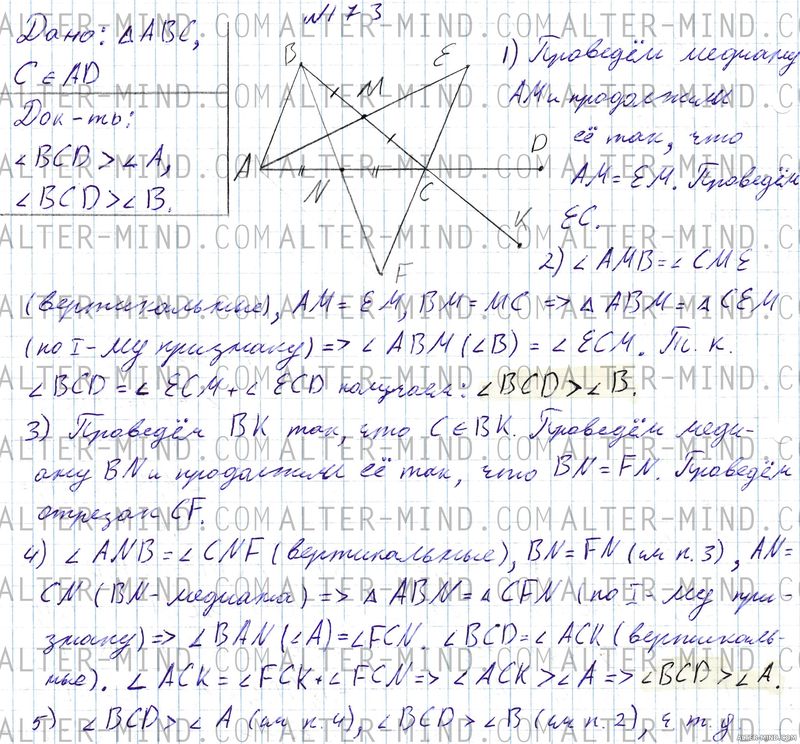 №173
Дано: △ABC,
C ∈ AD
Док-ть:
∠BCD > ∠A,
∠BCD > ∠B.
B
E
M
A
N
C
D
K
F
1) Проведём медиану
AM и продолжим
её так, что
AM = EM. Проведём
EC.
2) ∠AMB = ∠CME
(вертикальные), AM = EM, BM = MC => △ABM = △CEM
(по I-му признаку) => ∠ABM (∠B) = ∠ECM. Т. к.
∠BCD = ∠ECM + ∠ECD получаем: ∠BCD > ∠B.
3) Проведём BK так, что C ∈ BK. Проведём меди-
ану BN и продолжим её так, что BN = FN. Проведём
отрезок CF.
4) ∠ANB = ∠CNF (вертикальные), BN = FN (см п. 3), AN =
CN (BN - медиана) => △ABN = △CFN (по I-му при-
знаку) => ∠BAN (∠A) = ∠FCN. ∠BCD = ∠ACK (вертикаль-
ные). ∠ACK = ∠FCK + ∠FCN => ∠ACK > ∠A => ∠BCD > ∠A.
5) ∠BCD > ∠A (см п. 4), ∠BCD > ∠B (см п. 2), ч.т.д
ALTER-MIND.COM